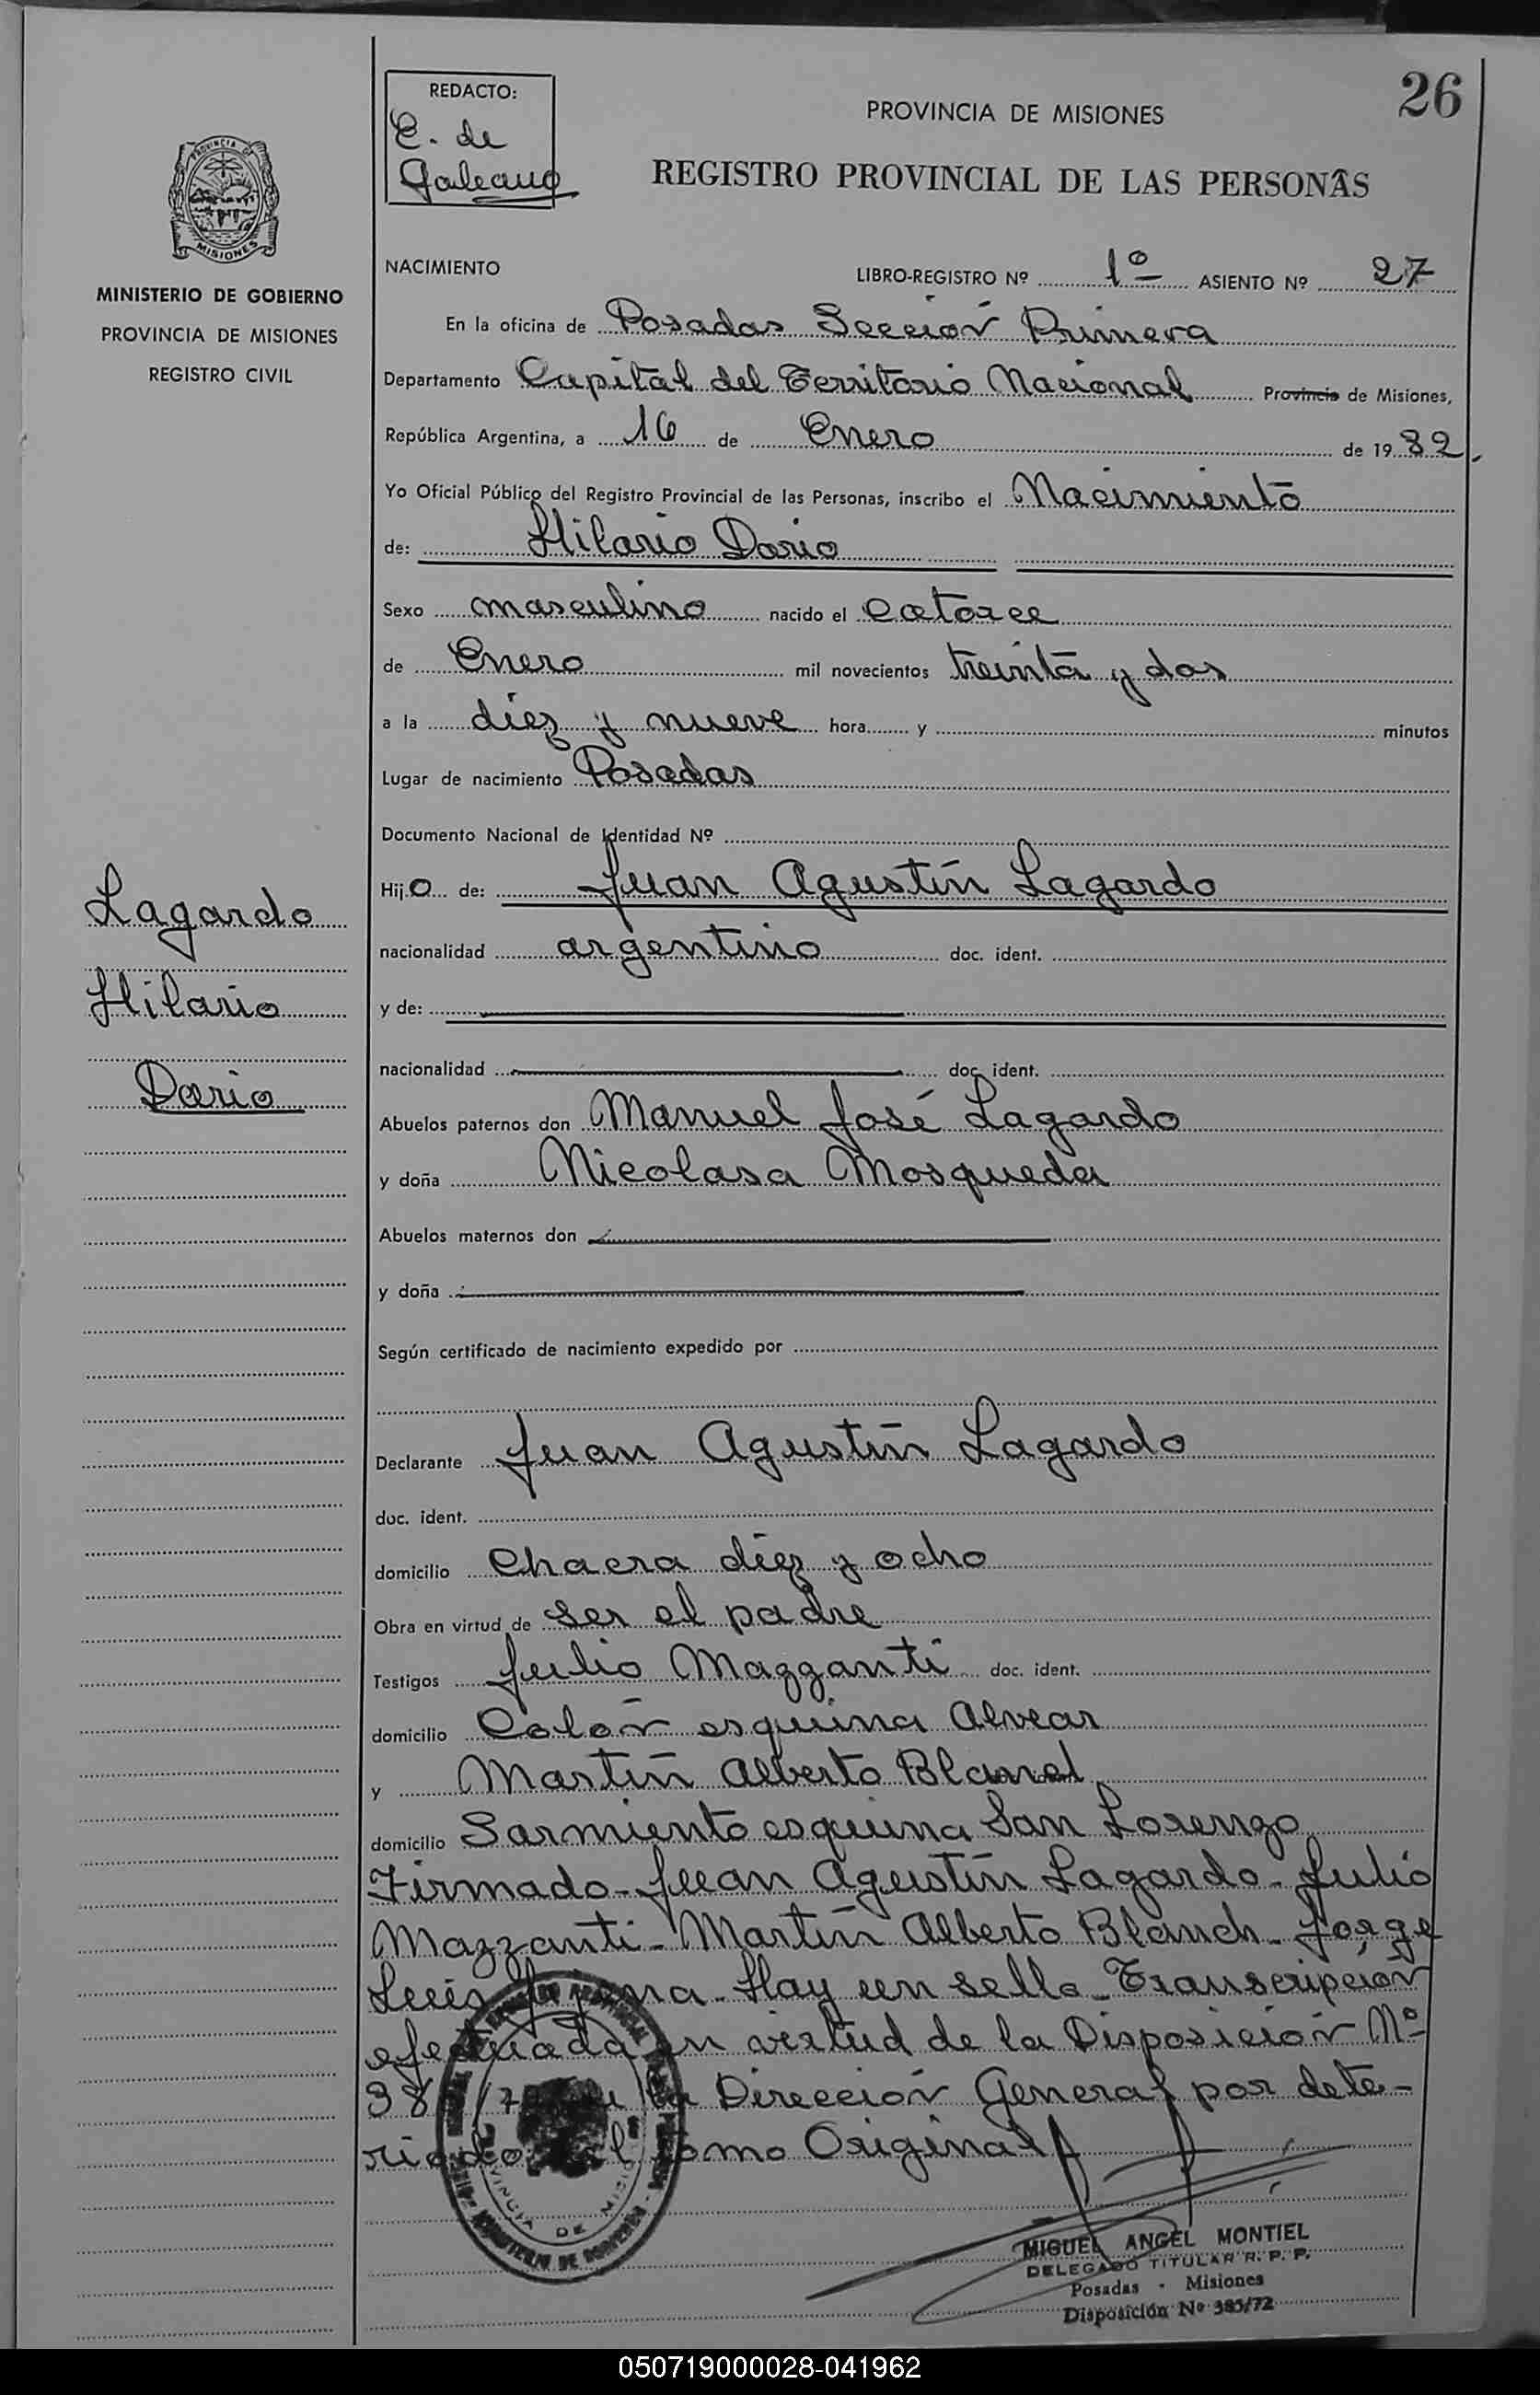 26
REDACTO:
E. de
Galeano
PROVINCIA DE MISIONES
REGISTRO PROVINCIAL DE LAS PERSONAS
PROVINCIA DE
MISIONES
MINISTERIO DE GOBIERNO
PROVINCIA DE MISIONES
REGISTRO CIVIL
NACIMIENTO LIBRO-REGISTRO Nº 1º ASIENTO Nº 27
En la oficina de Posadas Sección Primera
Departamento Capital del Territorio Nacional Provincia de Misiones,
República Argentina, a 16 de Enero de 1932.
Yo Oficial Público del Registro Provincial de las Personas, inscribo el Nacimiento
de: Hilario Dario
Sexo masculino nacido el catorce
de Enero mil novecientos treinta y dos
a la diez y nueve hora y minutos
Lugar de nacimiento Posadas
Documento Nacional de Identidad Nº
Hijo de: Juan Agustín Lagardo
nacionalidad argentino doc. ident.
y de:
nacionalidad doc. ident.
Abuelos paternos don Manuel José Lagardo
y doña Nicolasa Mosqueda
Abuelos maternos don
y doña
Según certificado de nacimiento expedido por
Declarante Juan Agustín Lagardo
doc. ident.
domicilio Chacra diez y ocho
Obra en virtud de ser el padre
Testigos Julio Mazzanti doc. ident.
domicilio Colón esquina Alvear
y Martín Alberto
domicilio Sarmiento esquina San Lorenzo
Firmado-Juan Agustín Lagardo-Julio
Mazzanti-Martín Alberto Blanch-Jorge
Luis Hay un sello-Transcripción
efectuada en virtud de la Disposición Nº
la Dirección General por dete-
tomo Original
Lagardo
Hilario
Dario
MIGUEL ANGEL MONTIEL
DELEGADO TITULAR R. P. P.
Posadas - Misiones
Disposición Nº 385/72
050719000028-041962